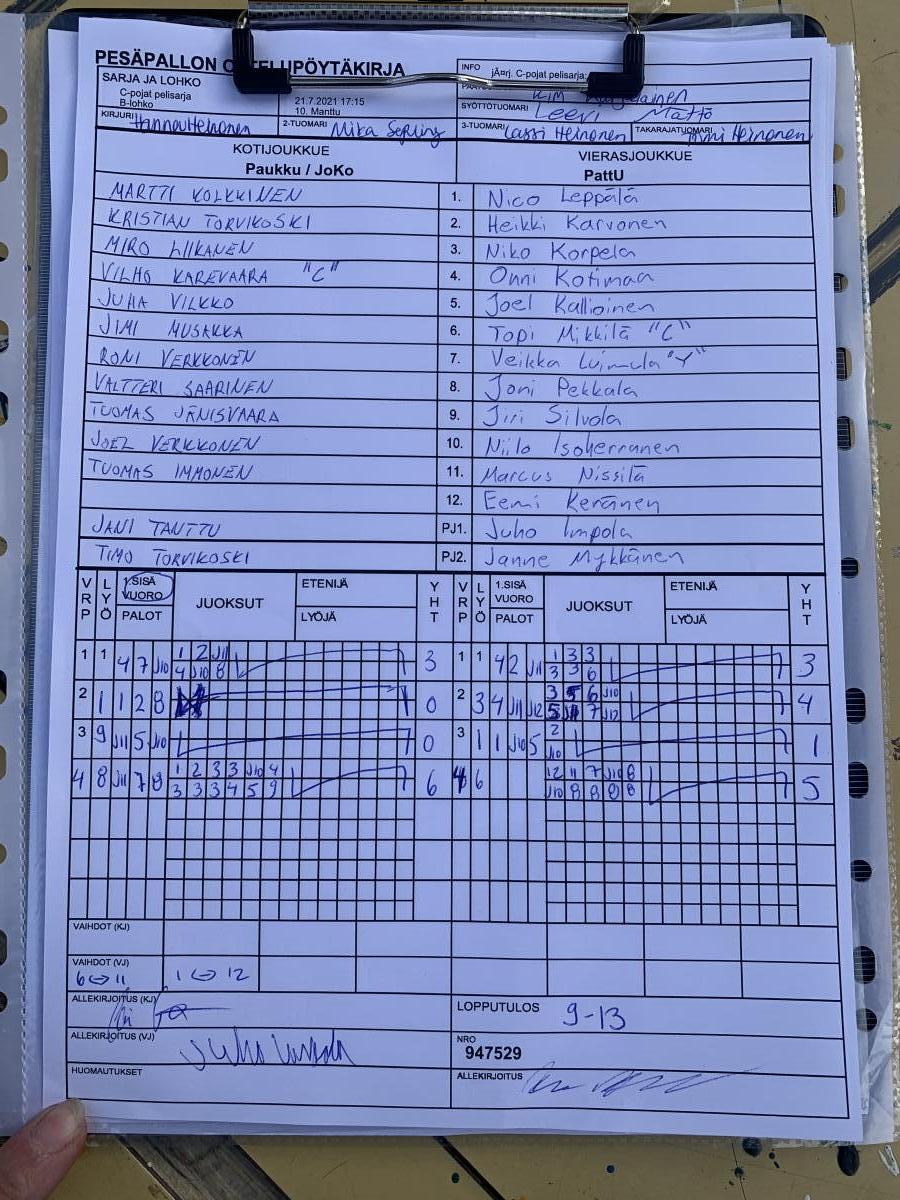 PESÄPALLON O TELUPÖYTÄKIRJA
SARJA JA LOHKO
C-pojat pelisarja
B-lohko
21.7.2021 17:15
10. Manttu
INFO järj. C-pojat pelisarja;
Kim
SYÖTTÖTUOMARI Leevi Mattö
KIRJURI Hannou Heinonen
2-TUOMARI Mika
3-TUOMARI Lassi Heinonen
TAKARAJATUOMARI Heinonen
KOTIJOUKKUE
Paukku / JoKo
VIERASJOUKKUE
PattU
MARTTI KOLKKINEN 1. Nico Leppälä
KRISTIAN TORVIKOSKI 2. Heikki Karvonen
MIRO LIIKANEN 3. Niko Korpela
VILHO KAREVAARA "C" 4. Onni Kotimaa
JUHA VILKKO 5. Joel Kallioinen
JIMI MUSAKKA 6. Topi Mikkilä "C"
RONI VERKKONEN 7. Veikka Luimula "Y"
VALTTERI SAARINEN 8. Joni Pekkala
TUOMAS JÄNISVAARA 9. Jiri Silvola
JOEL VERKKONEN 10. Niilo Isoherranen
TUOMAS IMMONEN 11. Marcus Nissilä
12. Eemi Keränen
JANI TANTTU PJ1. Juho Impola
TIMO TORVIKOSKI PJ2. Janne Mykkänen
VRP LYÖ 1.SISÄ VUORO PALOT JUOKSUT ETENIJÄ LYÖJÄ YHT VRP LYÖ 1.SISÄ VUORO PALOT JUOKSUT ETENIJÄ LYÖJÄ YHT
1 2 J11 1 3 3
1 1 4 7 J10 3 1 1 4 2 J11 3
4 J10 8 3 3 6
3 5 6 J10
2 1 1 2 8 0 2 3 4 J11 J12 4
5 7 J10
3 9 J11 5 J10 0 3 1 1 J10 5 2 1
J10
1 2 3 3 J10 4 12 11 7 J10 8
4 8 J11 7 8 6 4 6 5
3 3 3 4 5 9 J10 8 8 8 8
VAIHDOT (KJ)
VAIHDOT (VJ)
6 <-> 11 1 <-> 12
ALLEKIRJOITUS (KJ)
LOPPUTULOS 9-13
ALLEKIRJOITUS (VJ) Juho
NRO
947529
HUOMAUTUKSET
ALLEKIRJOITUS